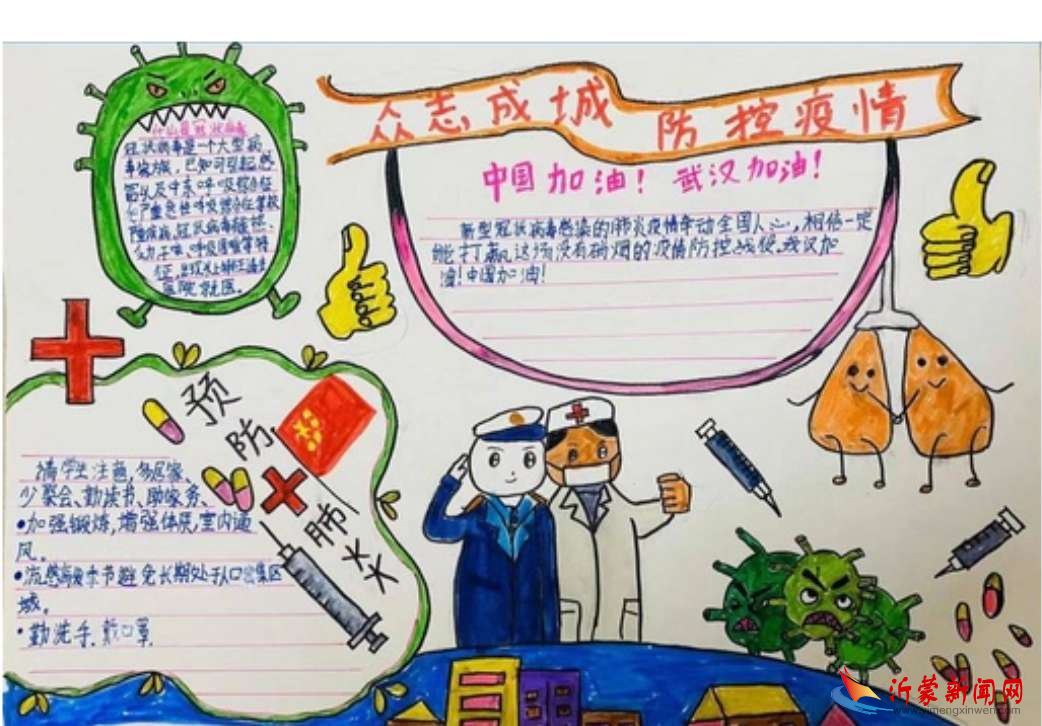 众志成城 防控疫情
中国加油！武汉加油！
新型冠状病毒感染的肺炎疫情牵动全国人心,相信一定
能打赢这场没有硝烟的疫情防控战役。武汉加
油！中国加油！
什么是冠状病毒
冠状病毒是一个大型病
毒家族，已知可引起感
冒以及中东呼吸综合征
和严重急性呼吸综合征等较
严重疾病。冠状病毒
力、干咳、呼吸困难等特
征,
医院就医。
预防肺炎
请学生注意,多居家、
少聚会、勤读书、助家务、
•加强锻炼,增强体质,室内通
风。
•流感高发季节避免长期处于人口密集区
域。
•勤洗手、戴口罩.
沂蒙新闻网
www.yimengxinwen.com